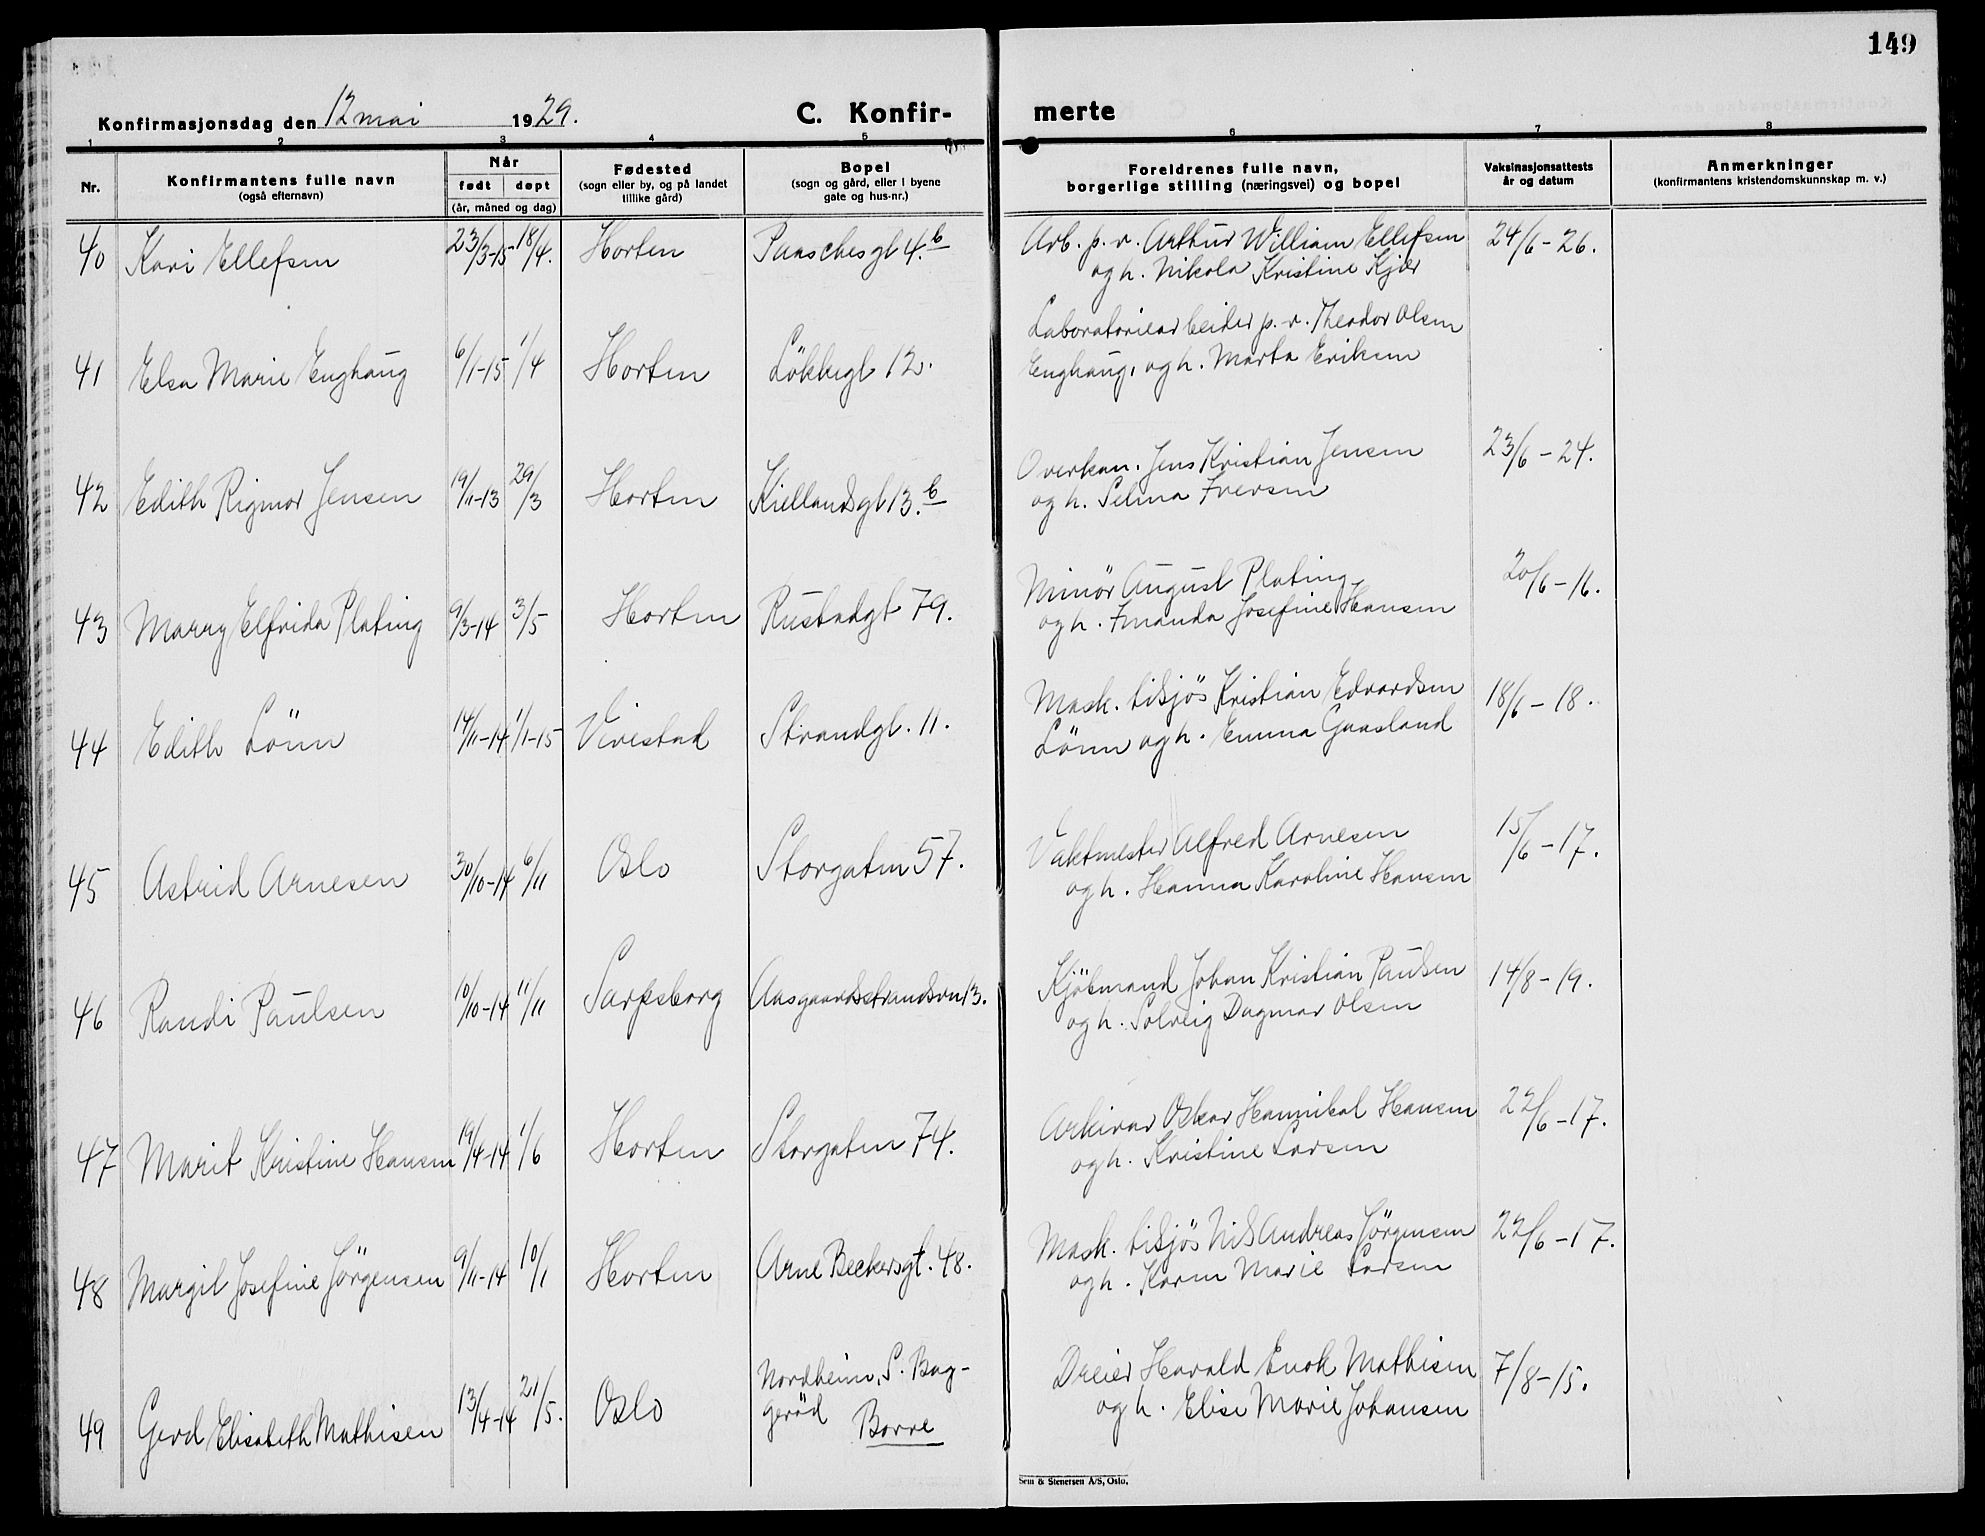 149
Konfirmasjonsdag den 12 mai 1929.
C. Konfir-
merte
1 2 3 4 5 6 7 8
Nr.
Konfirmantens fulle navn
(også efternavn)
Når
født døpt
(år, måned og dag)
Fødested
(sogn eller by, og på landet
tillike gård)
Bopel
(sogn og gård, eller i byene
gate og hus-nr.)
Foreldrenes fulle navn,
borgerlige stilling (næringsvei) og bopel
Vaksinasjonsattests
år og datum
Anmerkninger
(konfirmantens kristendomskunnskap m. v.)
40 Kari Ellefsen 23/3-15 18/4. Horten Paaschesgt 4.b Arb. p. v. Arthur William Ellefsen 24/6-26.
og h. Nikola Kristine Kjær
Laboratoriearbeider p. v. Theodor Olsen
41 Elsa Marie Enghaug 6/1-15 1/4 Horten Lökkegt 12. Enghaug, og h. Marta Eriksen
42 Edith Rigmor Jensen 19/11-13 29/3 Horten Kiellandsgt 13.b Overkan. Jens Kristian Jensen 23/6-24.
og h. Selma Iversen
43 Marry Elfrida Plating 9/3-14 3/5 Horten Rustadgt 79. Minör August Plating 20/6-16.
og h. Imanda Josefine Hansen
44 Edith Lönn 14/11-14 1/1-15 Vivestad Strandgt. 11. Mask. tilsjös Kristian Edvardsen 18/6-18.
Lönn og h. Emma Gaasland
45 Astrid Arnesen 30/10-14 6/11 Oslo Storgaten 57. Vaktmester Alfred Arnesen 15/6-17.
og h. Hanna Karoline Hansen
46 Randi Paulsen 10/10-14 11/11 Sarpsborg Aasgaardsstrandsvn 13. Kjöbmand Johan Kristian Paulsen 14/8-19.
og h. Solveig Dagmar Olsen
47 Marit Kristine Hansen 19/4-14 1/6 Horten Storgaten 74. Arkivar Oskar Hannibal Hansen 22/6-17.
og h. Kristine Larsen
48 Margit Josefine Jörgensen 9/11-14 10/1 Horten Arne Beckersgt. 48. Mask. tilsjös Nils Andreas Jörgensen 22/6-17.
og h. Karen Marie Larsen
49 Gerd Elisabeth Mathisen 13/4-14 21/5. Oslo Nordheim, S. Bag-
geröd
Borre
Dreier Harald Enok Mathisen 7/8-15.
og h. Elise Marie Johansen
Sem & Stenersen A/S, Oslo.